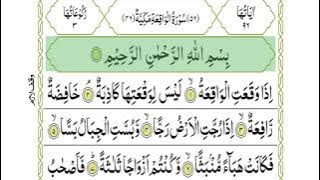 اٰيَاتُهَا ٩٦
(٥٦) سُوْرَةُ الْوَاقِعَةِ مَكِّيَّةٌ (٤٦)
رُكُوْعَاتُهَا ٣
بِسْمِ اللّٰهِ الرَّحْمٰنِ الرَّحِيْمِ
اِذَا وَقَعَتِ الْوَاقِعَةُ ۝١ لَيْسَ لِوَقْعَتِهَا كَاذِبَةٌ ۝٢ خَافِضَةٌ
رَّافِعَةٌ ۝٣ اِذَا رُجَّتِ الْاَرْضُ رَجًّا ۝٤ وَّبُسَّتِ الْجِبَالُ بَسًّا ۝٥
فَكَانَتْ هَبَآءً مُّنْۢبَثًّا ۝٦ وَّكُنْتُمْ اَزْوَاجًا ثَلٰثَةً ۝٧ فَاَصْحٰبُ